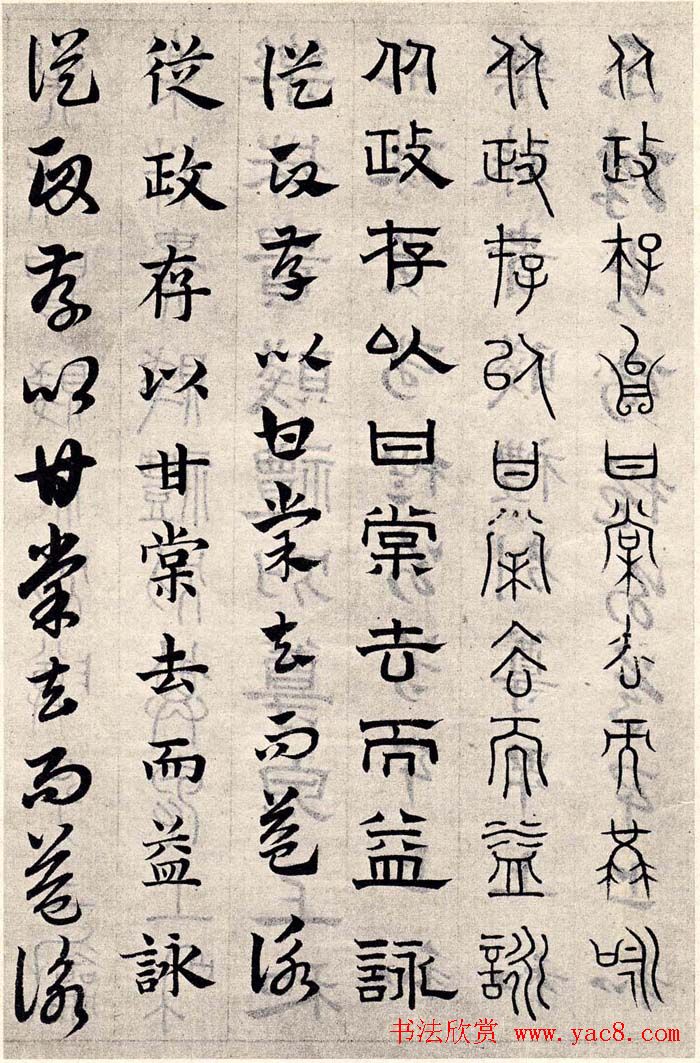 从政存以甘棠去而益咏
从政存以甘棠去而益詠
从政存以甘棠去而益詠
從政存以甘棠去而益詠
從政存以甘棠去而益詠
從政存以甘棠去而益詠
书法欣赏 www.yac8.com